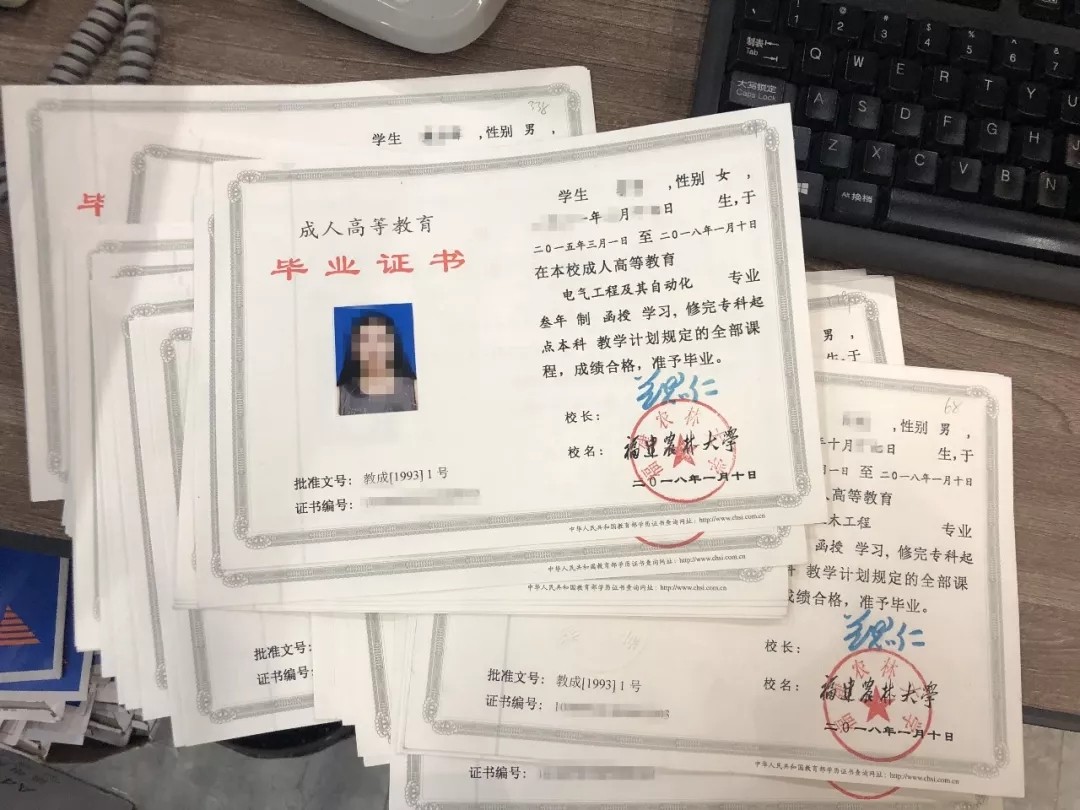 338
学生 ,性别 男 ,
毕
成人高等教育
毕业证书
学生 ,性别 女 ,
年 月 日 生,于
二〇一五年三月一日 至 二〇一八年一月十日
在本校成人高等教育
电气工程及其自动化 专业
叁年 制 函授 学习, 修完专科起
点本科 教学计划规定的全部课
程, 成绩合格, 准予毕业。
校长:
校名: 福建农林大学
二〇一八年一月十日
批准文号: 教成[1993] 1 号
证书编号:
中华人民共和国教育部学历证书查询网址: http://www.chsi.com.cn
中华人民共和国教育部学历证书查询网址: http://www.chsi.com.cn
中华人民共和国教育部学历证书查询网址: http://www.chsi.com.cn
男 ,
生,于
68
,性别 男 ,
年十月 日 生,于
月一日 至 二〇一八年一月十日
人高等教育
木工程 专业
函授 学习, 修完专科起
教学计划规定的全部课
成绩合格, 准予毕业。
校长:
校名: 福建农林大学
二〇一八年一月十日
批准文号: 教成[1993] 1 号
证书编号: 10
中华人民共和国教育部学历证书查询网址: http://www.chsi.com.cn
批准文号:
证书编号:
证书编号:
制表 Tab
Q W E R T Y U
大写锁定 Caps Lock
A S D F G H J
Z X C V B N
Alt 换档